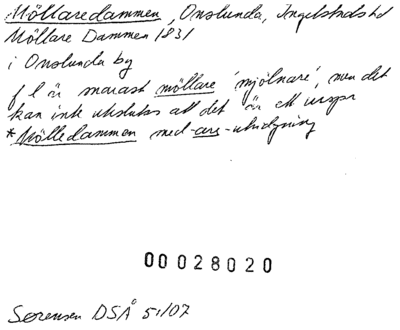 Möllaredammen, Onslunda, Ingelstads hd
Möllare Dammen 1831
i Onslunda by
f l är snarast möllare 'mjölnare', men det
kan inte uteslutas att det är ett urspr
*Mölledammen med -are-utvidgning
00028020
Sørensen DSÅ 51/07